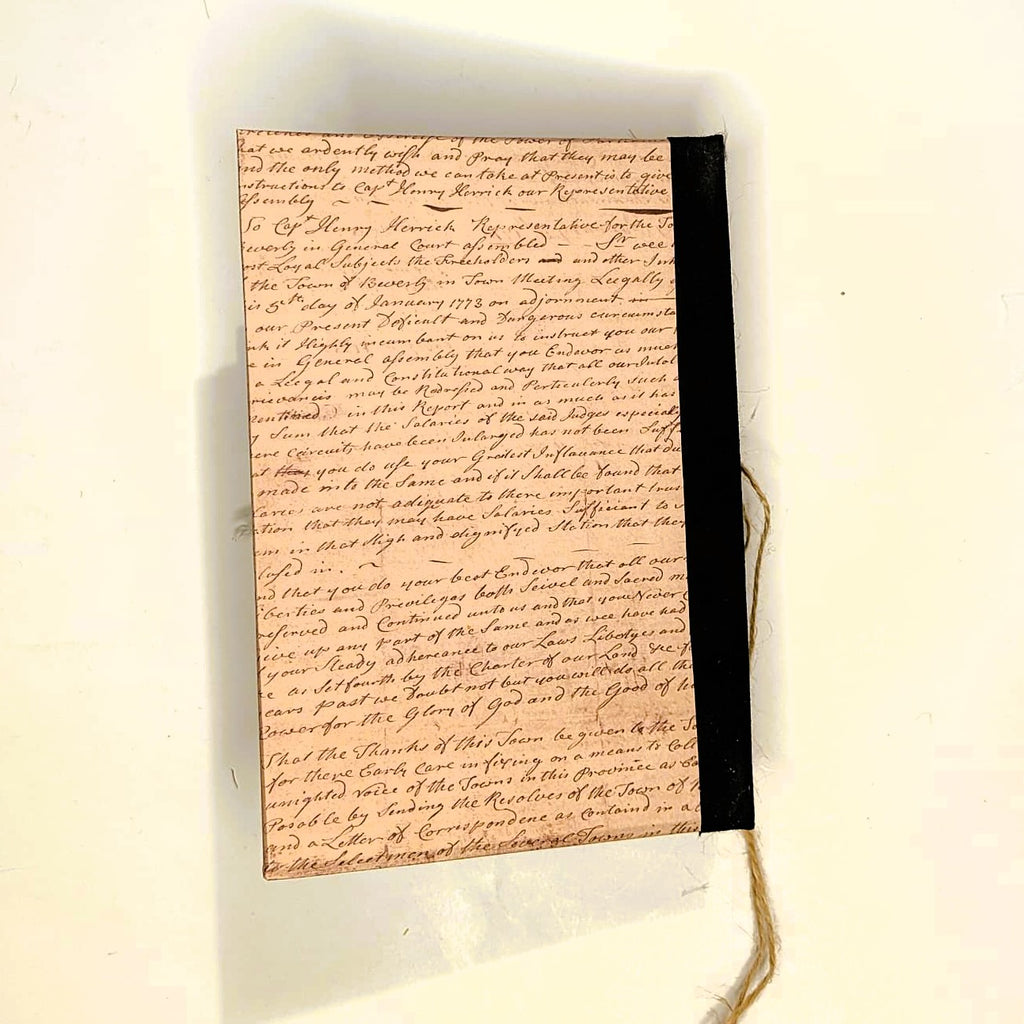 hat we ardently wish and Pray that they may be
nd the only method we can take at Present is to give
nstructions to Capt Henry Herrick our Representative
Assembly
To Capt Henry Herrick Representative for the To
everly in General Court assembled — Sr wee
ost Loyal Subjects the Freeholders and other Inh
the Town of Beverly in Town Meeting Leegally
is 5th day of January 1773 on adjornment in
our Present Deficult and Dangerous curcumsta
nk it Highly incumbant on us to instruct you our
e in General assembly that you Endevor as much
a Leegal and Constitutional way that all our Intol
rievancis may be Redressed and Perticulerly such
in this Report and in as much as it has
y Sum that the Salaries of the said Judges especial
ere Circuits have been Inlarged has not been Suff
at you do use your Greatest Influance that du
made into the Same and if it Shall be found that
laries are not adiquate to there important trus
tion that they may have Salaries Sufficient to s
em in that High and dignifyed Station that they
in.
nd that you do your best Endevor that all our
iberties and Previliges both Seivel and Sacred m
reserved and Continued unto us and that you Never
Give up any part of the Same and as wee have had
your Steady adhereance to our Laws Libetyes and
e as Set fourth by the Charter of our Land
ears past we Doubt not but you will do all th
Power for the Glory of God and the Good of
That the Thanks of this Town be given to the To
for there Early Care in fixing on a means to Coll
unighted voice of the Towns in this Province as
Posable by Sending the Resolves of the Town of
and a Letter of Correspondene as Containd in a
to the Selectmen of the Several Towns in this